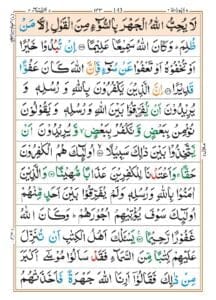 لَا يُحِبُّ اللّٰهُ الْجَهْرَ بِالسُّوْٓءِ مِنَ الْقَوْلِ اِلَّا مَنْ
ظُلِمَ ؕ وَكَانَ اللّٰهُ سَمِيْعًا عَلِيْمًا اِنْ تُبْدُوْا خَيْرًا
اَوْ تُخْفُوْهُ اَوْ تَعْفُوْا عَنْ سُوْٓءٍ فَاِنَّ اللّٰهَ كَانَ عَفُوًّا
قَدِيْرًا اِنَّ الَّذِيْنَ يَكْفُرُوْنَ بِاللّٰهِ وَرُسُلِهٖ وَ
يُرِيْدُوْنَ اَنْ يُّفَرِّقُوْا بَيْنَ اللّٰهِ وَرُسُلِهٖ وَيَقُوْلُوْنَ
نُؤْمِنُ بِبَعْضٍ وَّنَكْفُرُ بِبَعْضٍ وَّيُرِيْدُوْنَ اَنْ
يَّتَّخِذُوْا بَيْنَ ذٰلِكَ سَبِيْلًا اُولٰٓئِكَ هُمُ الْكٰفِرُوْنَ
حَقًّا وَاَعْتَدْنَا لِلْكٰفِرِيْنَ عَذَابًا مُّهِيْنًا وَالَّذِيْنَ
اٰمَنُوْا بِاللّٰهِ وَرُسُلِهٖ وَلَمْ يُفَرِّقُوْا بَيْنَ اَحَدٍ مِّنْهُمْ
اُولٰٓئِكَ سَوْفَ يُؤْتِيْهِمْ اُجُوْرَهُمْ ؕ وَكَانَ اللّٰهُ
غَفُوْرًا رَّحِيْمًا يَسْـَٔلُكَ اَهْلُ الْكِتٰبِ اَنْ تُنَزِّلَ
عَلَيْهِمْ كِتٰبًا مِّنَ السَّمَآءِ فَقَدْ سَاَلُوْا مُوْسٰٓى اَكْبَرَ
مِنْ ذٰلِكَ فَقَالُوْٓا اَرِنَا اللّٰهَ جَهْرَةً فَاَخَذَتْهُمُ